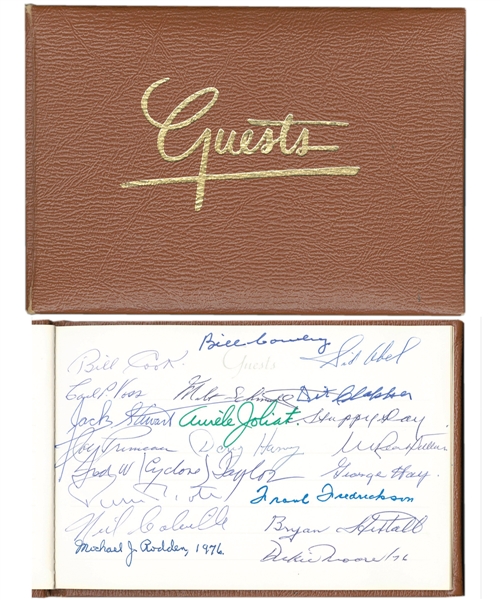 Guests
Bill Cowley
Guests
Bill Cook. Sid Abel
Carl P. Voss Milt Schmidt Dit Clapper
Jack Stewart Aurèle Joliat Happy Day
Joe Primeau Doug Harvey
Fred W (Cyclone) Taylor George Hay.
Pierre Pilote Frank Fredrickson
Neil Colville Bryan Hextall
Michael J. Rodden, 1976. Dickie Moore/76